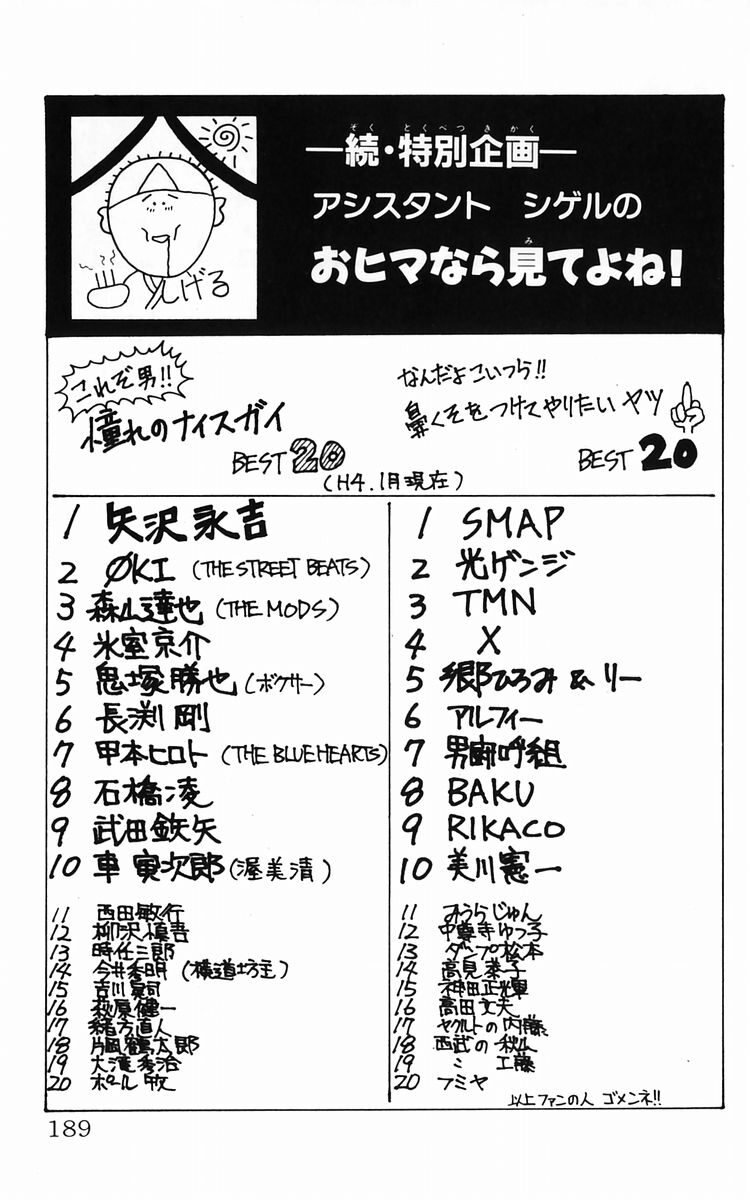 ―続・特別企画―
アシスタント シゲルの
おヒマなら見てよね!
しげる
これぞ男!!
憧れのナイスガイ
BEST 20
なんだよこいつら!!
鼻くそをつけてやりたい ヤツ
BEST 20
(H4.1月現在)
1 矢沢永吉
2 ØKI (THE STREET BEATS)
3 森山達也 (THE MODS)
4 氷室京介
5 鬼塚勝也 (ボクサー)
6 長渕剛
7 甲本ヒロト (THE BLUE HEARTS)
8 石橋凌
9 武田鉄矢
10 車寅次郎 (渥美清)
11 西田敏行
12 柳沢慎吾
13 時任三郎
14 今井秀明 (横道坊主)
15 吉川晃司
16 萩原健一
17 緒方直人
18 片岡鶴太郎
19 大滝秀治
20 ポール牧
1 SMAP
2 光ゲンジ
3 TMN
4 X
5 郷ひろみ & リー
6 アルフィー
7 男闘呼組
8 BAKU
9 RIKACO
10 美川憲一
11 みうらじゅん
12 中尊寺ゆつ子
13 ダンプ松本
14 高見恭子
15 神田正輝
16 高田文夫
17 ヤクルトの内藤
18 西武の秋山
19 〃 工藤
20 フミヤ
以上ファンの人 ゴメンネ!!
189